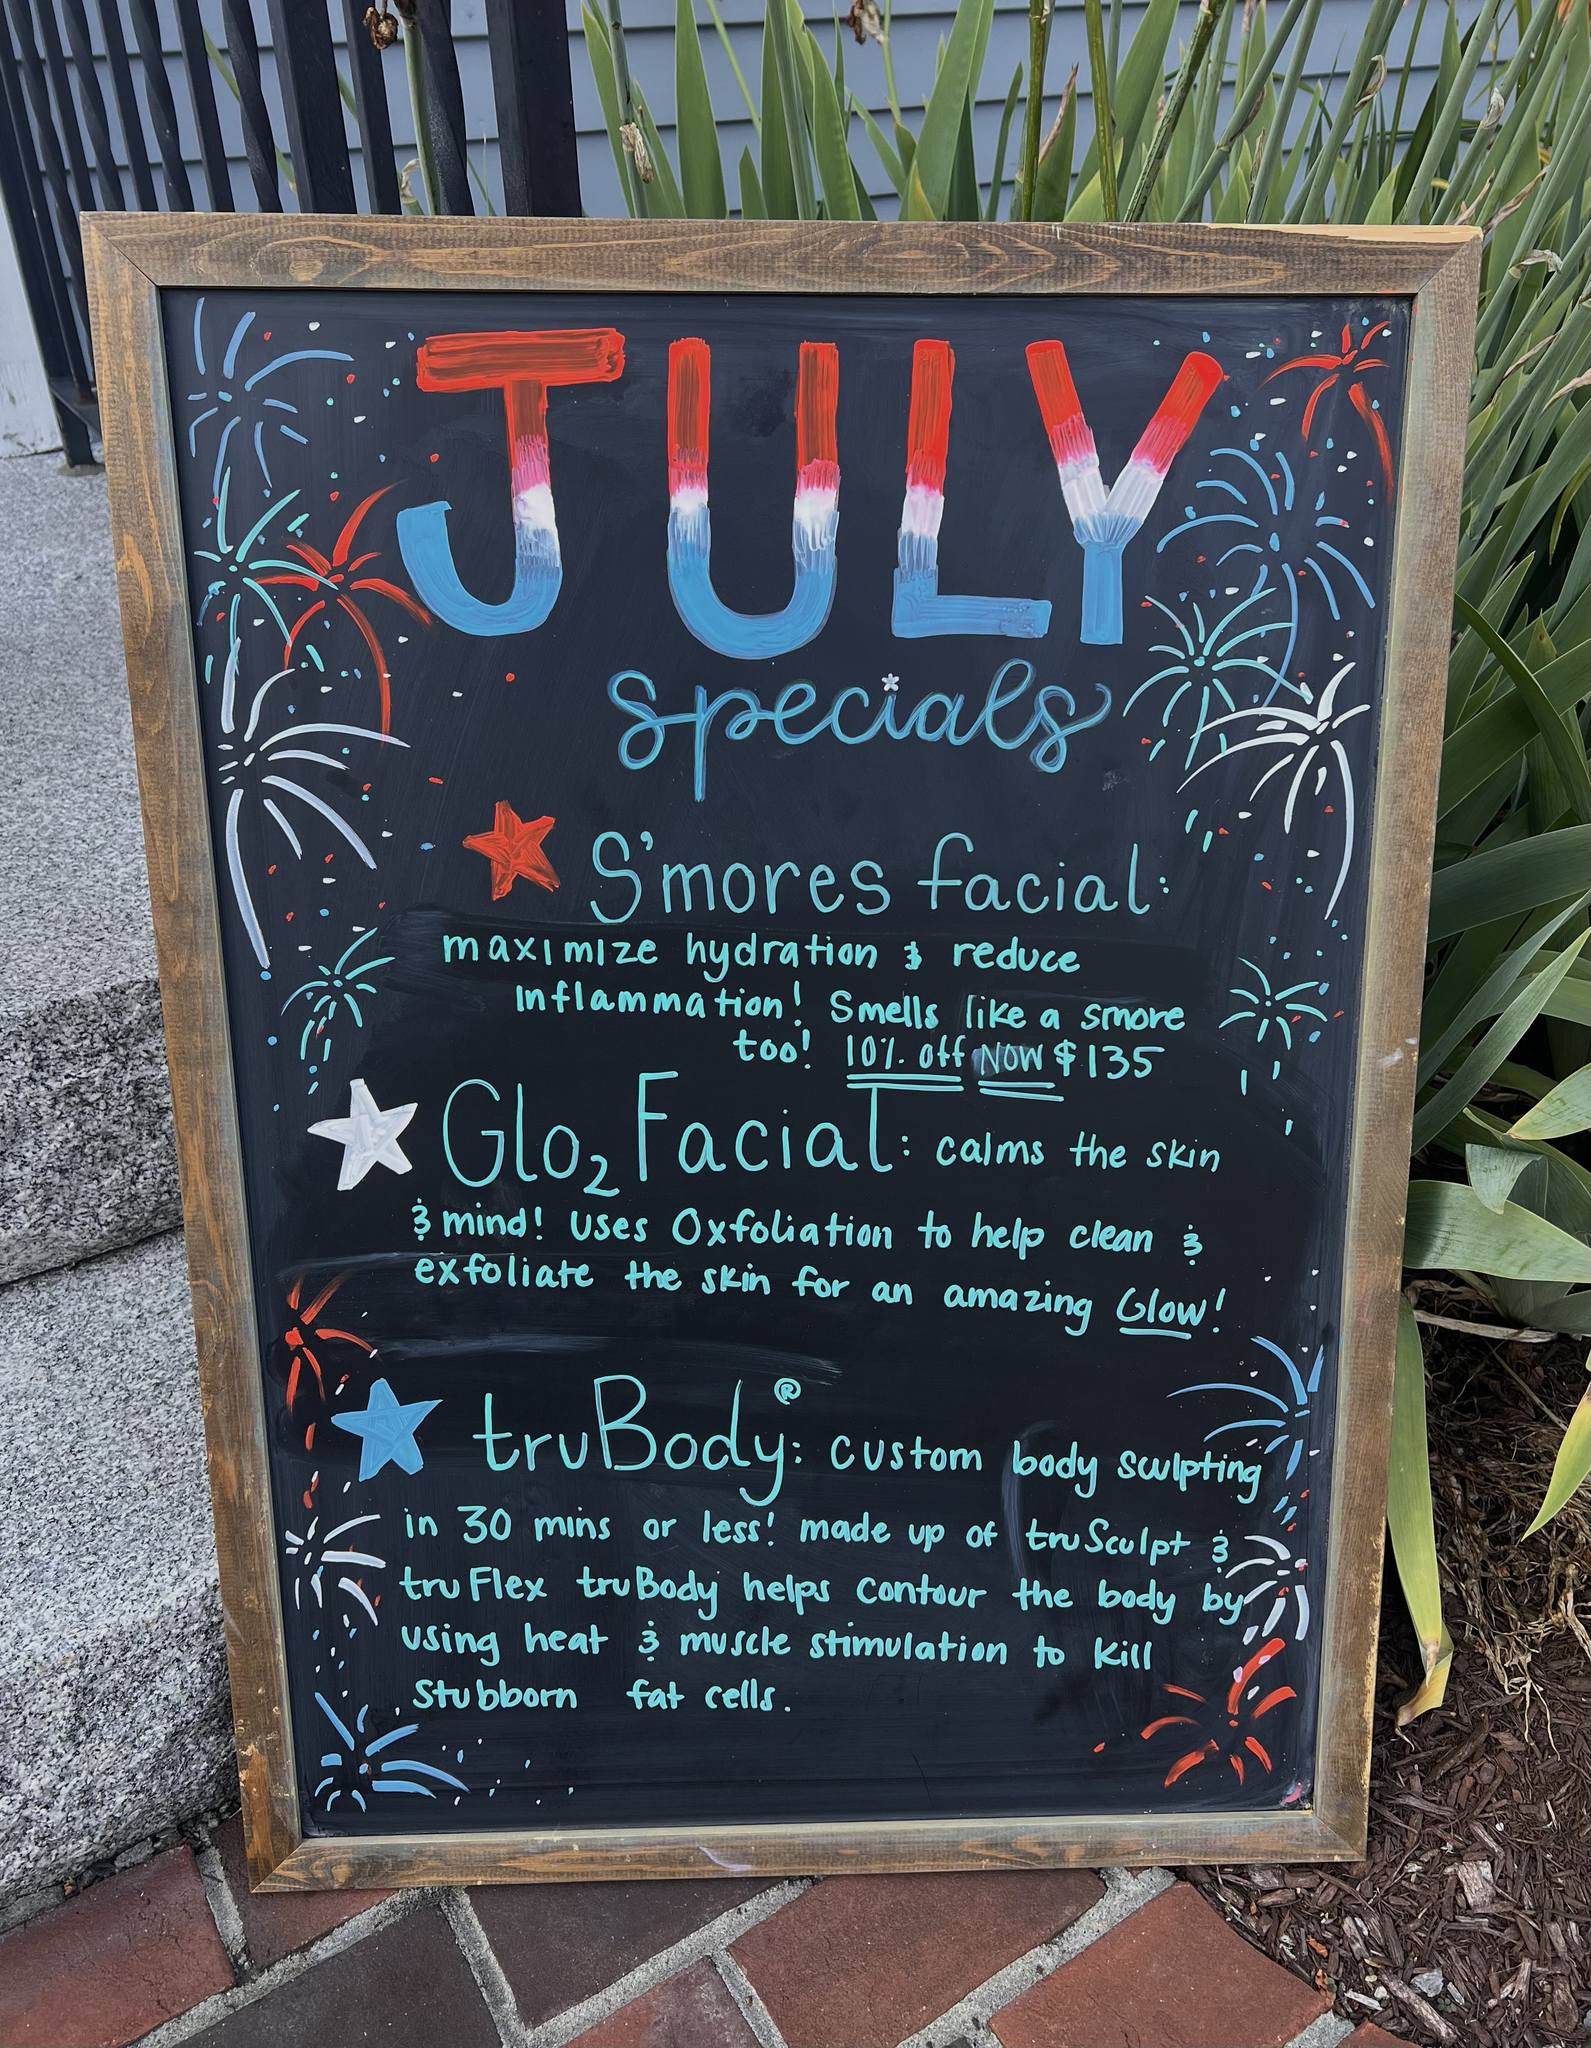 JULY
specials
S'mores facial:
maximize hydration & reduce
inflammation! Smells like a smore
too! 10% off NOW $135
Glo₂ Facial: calms the skin
& mind! uses Oxfoliation to help clean &
exfoliate the skin for an amazing Glow!
truBody®: custom body sculpting
in 30 mins or less! made up of truSculpt &
truFlex truBody helps contour the body by
using heat & muscle stimulation to kill
stubborn fat cells.